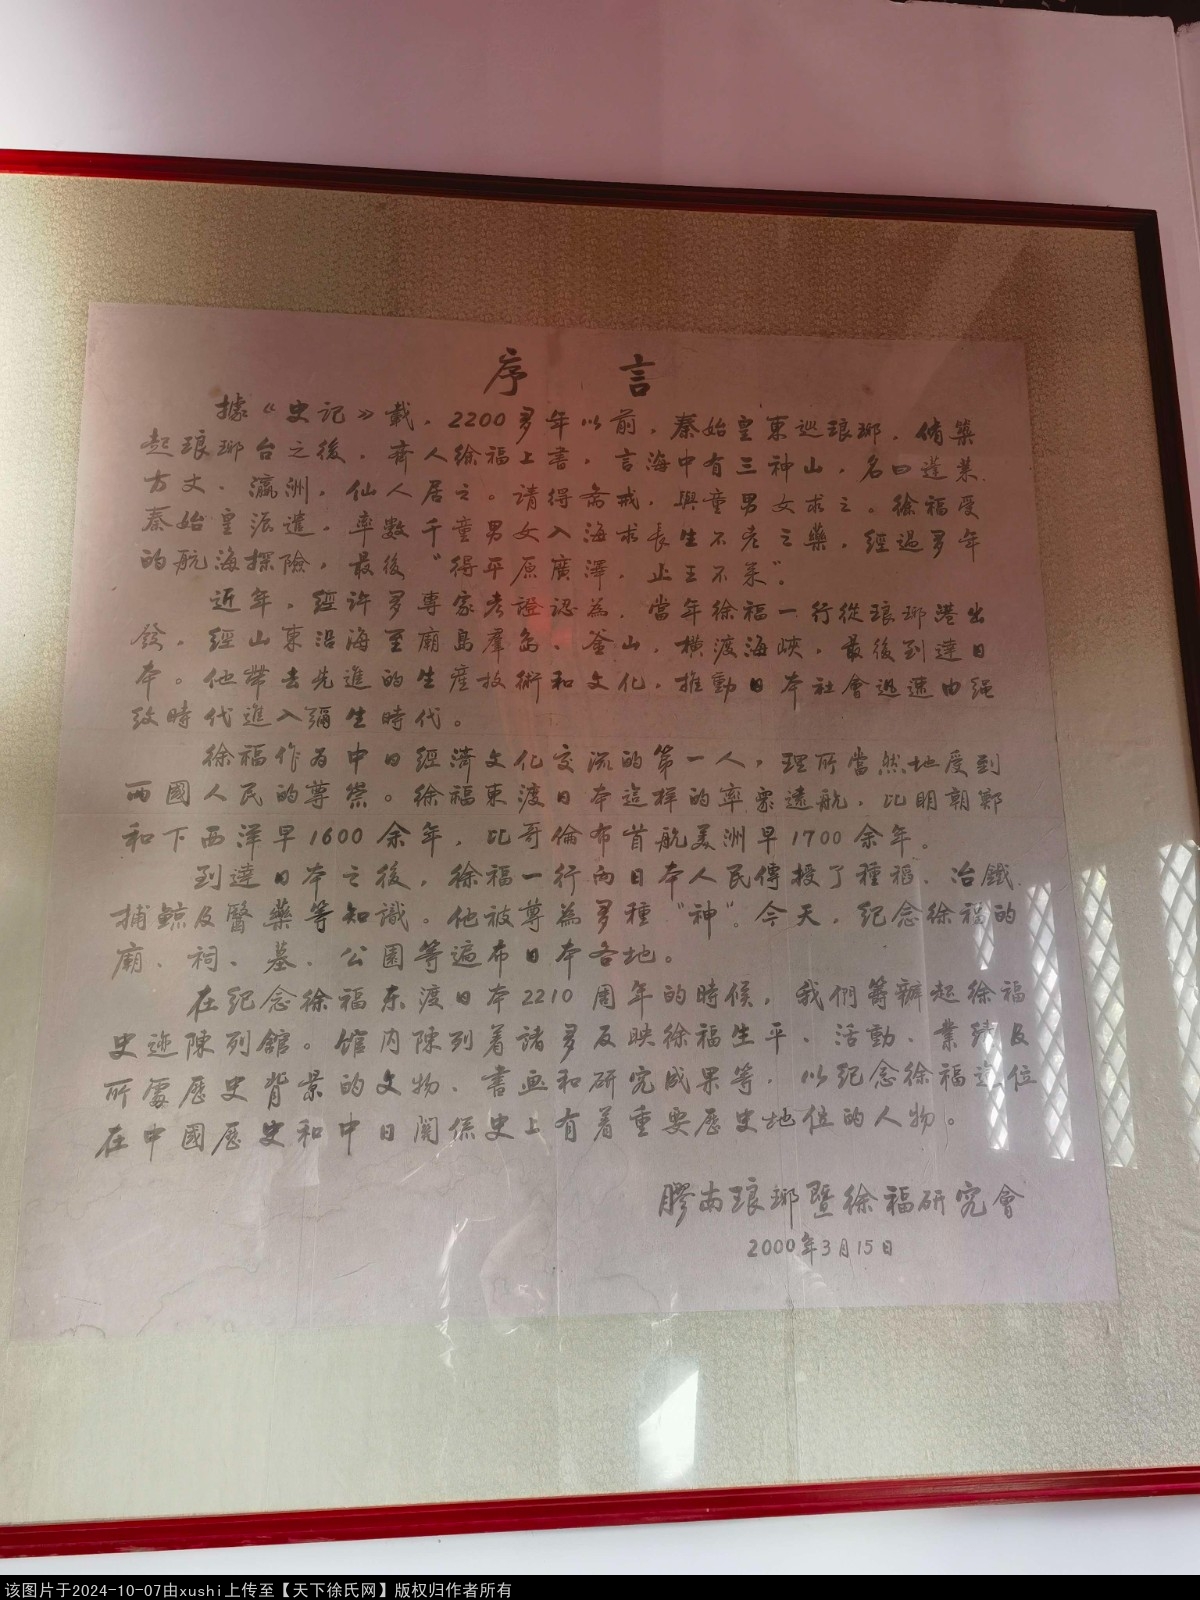 序言
據《史记》載，2200多年以前，秦始皇東巡琅琊，脩築
起琅琊台之後，齊人徐福上書，言海中有三神山，名曰蓬萊、
方丈、瀛洲，仙人居之。請得斋戒，與童男女求之。徐福受
秦始皇派遣，率數千童男女入海求長生不老之藥，經過多年
的航海探險，最後“得平原廣澤，止王不来”。
近年，經许多專家考證認為，當年徐福一行從琅琊港出
發，經山東沿海至廟島羣島、釜山，横渡海峽，最後到達日
本。他帶去先進的生產技術和文化，推動日本社會迅速由绳
纹時代進入彌生時代。
徐福作为中日經濟文化交流的第一人，理所當然地受到
两國人民的尊崇。徐福東渡日本這样的率衆遠航，比明朝鄭
和下西洋早1600余年，比哥倫布首航美洲早1700余年。
到達日本之後，徐福一行向日本人民傳授了種稻、冶鐵、
捕鯨及醫藥等知識。他被尊為多種“神”。今天，纪念徐福的
廟、祠、墓、公園等遍布日本各地。
在纪念徐福东渡日本2210周年的時候，我們籌辦起徐福
史迹陳列館。馆内陳列着諸多反映徐福生平、活動、業績及
所處歷史背景的文物、書画和研究成果等，以纪念徐福這位
在中國歷史和中日関係史上有着重要歷史地位的人物。
膠南琅琊暨徐福研究會
2000年3月15日
该图片于2024-10-07由xushi上传至【天下徐氏网】版权归作者所有